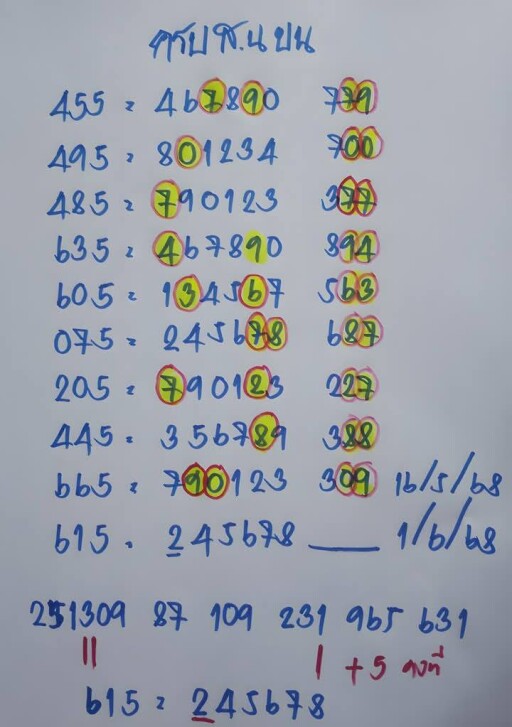 455 = 467890 779
495 = 801234 700
485 = 790123 377
635 = 467890 894
605 = 134567 563
075 = 245678 687
205 = 790123 227
445 = 356789 388
665 = 790123 309 16/5/68
615 = 245678 ___ 1/6/68
251309 87 109 231 965 631
11 1 +5 คงที่
615 = 245678